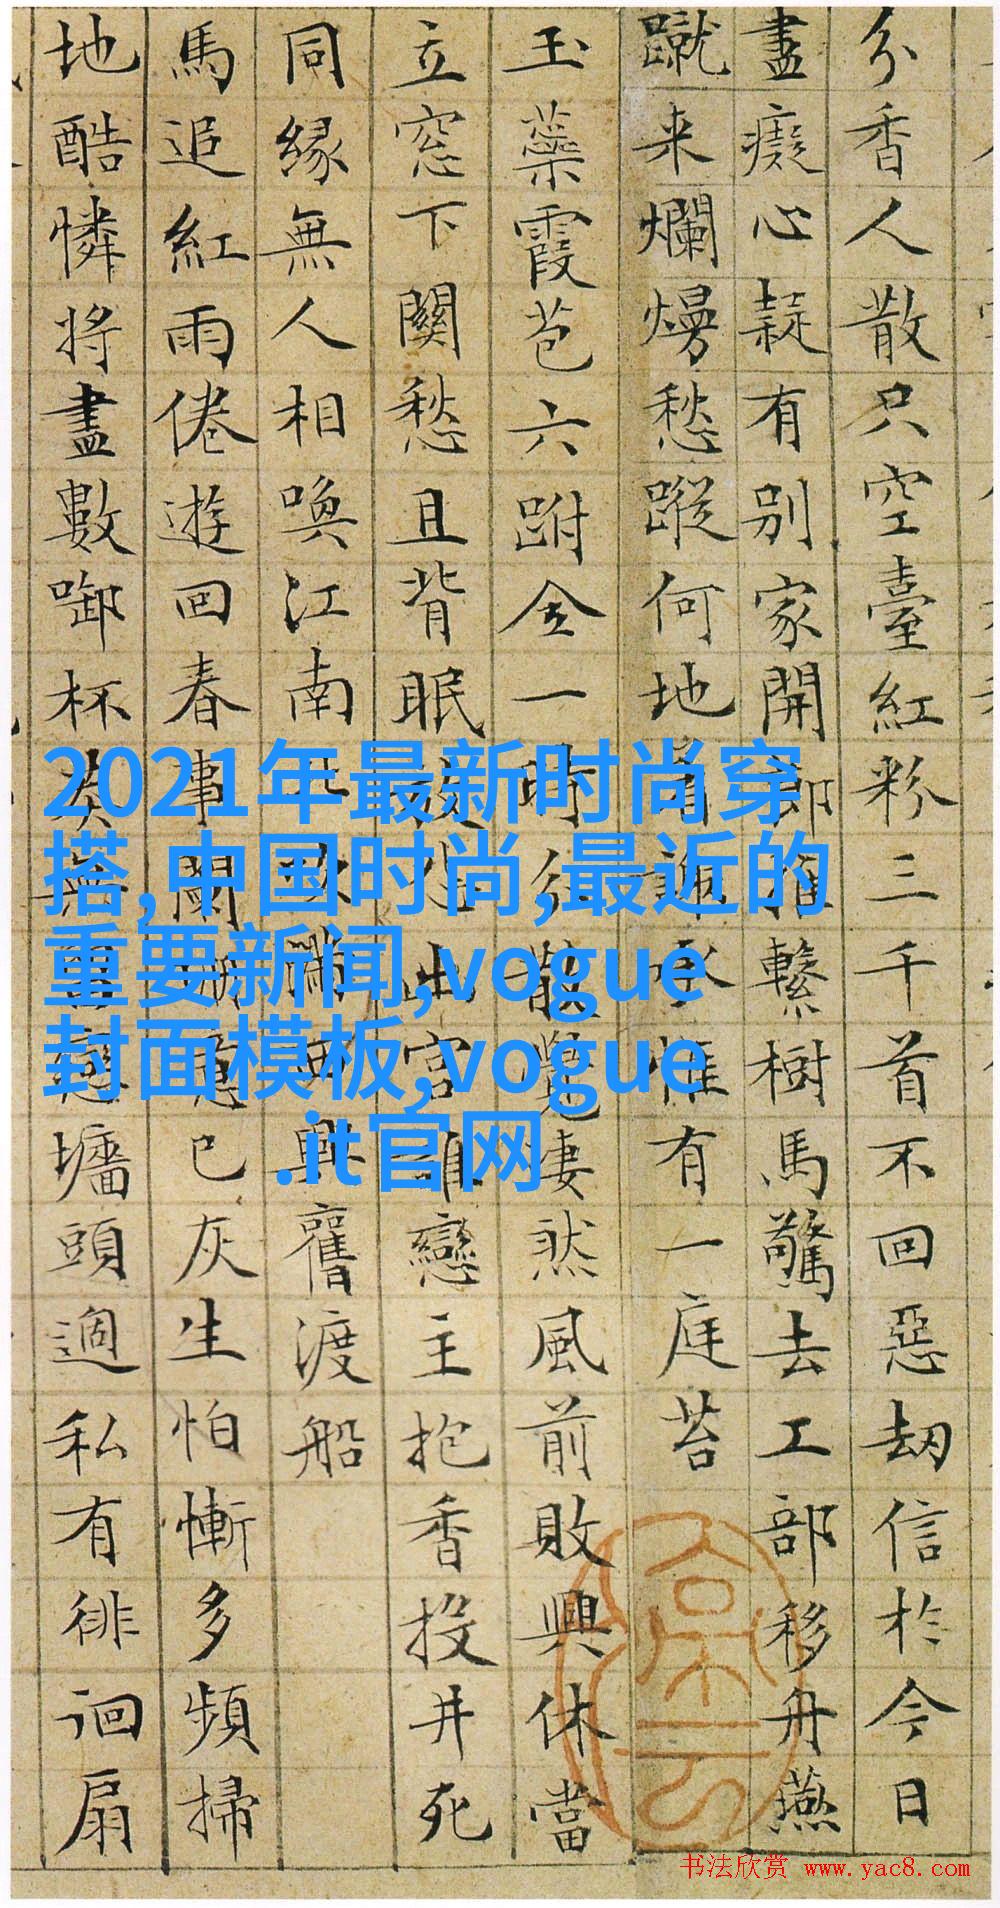 分香人散只空臺紅粉三千首不回惡劫信於今日
盡癡心疑有別家開節推繫樹馬驚去工部移舟燕
蹴来爛熳愁蹤何地承惟有一庭苔
玉蘂霞苞六跗全一時分散覺淒然風前敗興休當
立窓下關愁且背眠放出宮誰戀主抱香投井死
同縁無人相喚江南北吹滿西興舊渡船
馬追紅雨倦遊回春事闌珊意已灰生怕慚多頻掃
地酷憐將盡數啣杯無墻頭適私有徘徊扇
2021年最新时尚穿
搭,中国时尚,最近的
重要新闻,vogue
封面模板,vogue
.it官网
书法欣赏 www.yac8.com